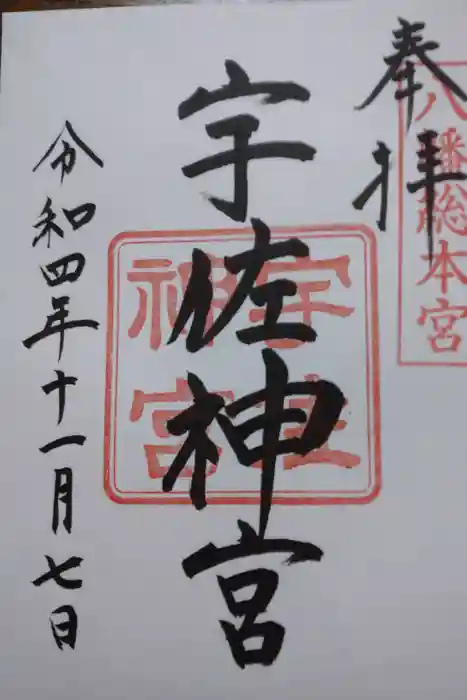 奉拝
八幡総本宮
宇佐神宮
宇佐
神宮
令和四年十一月七日